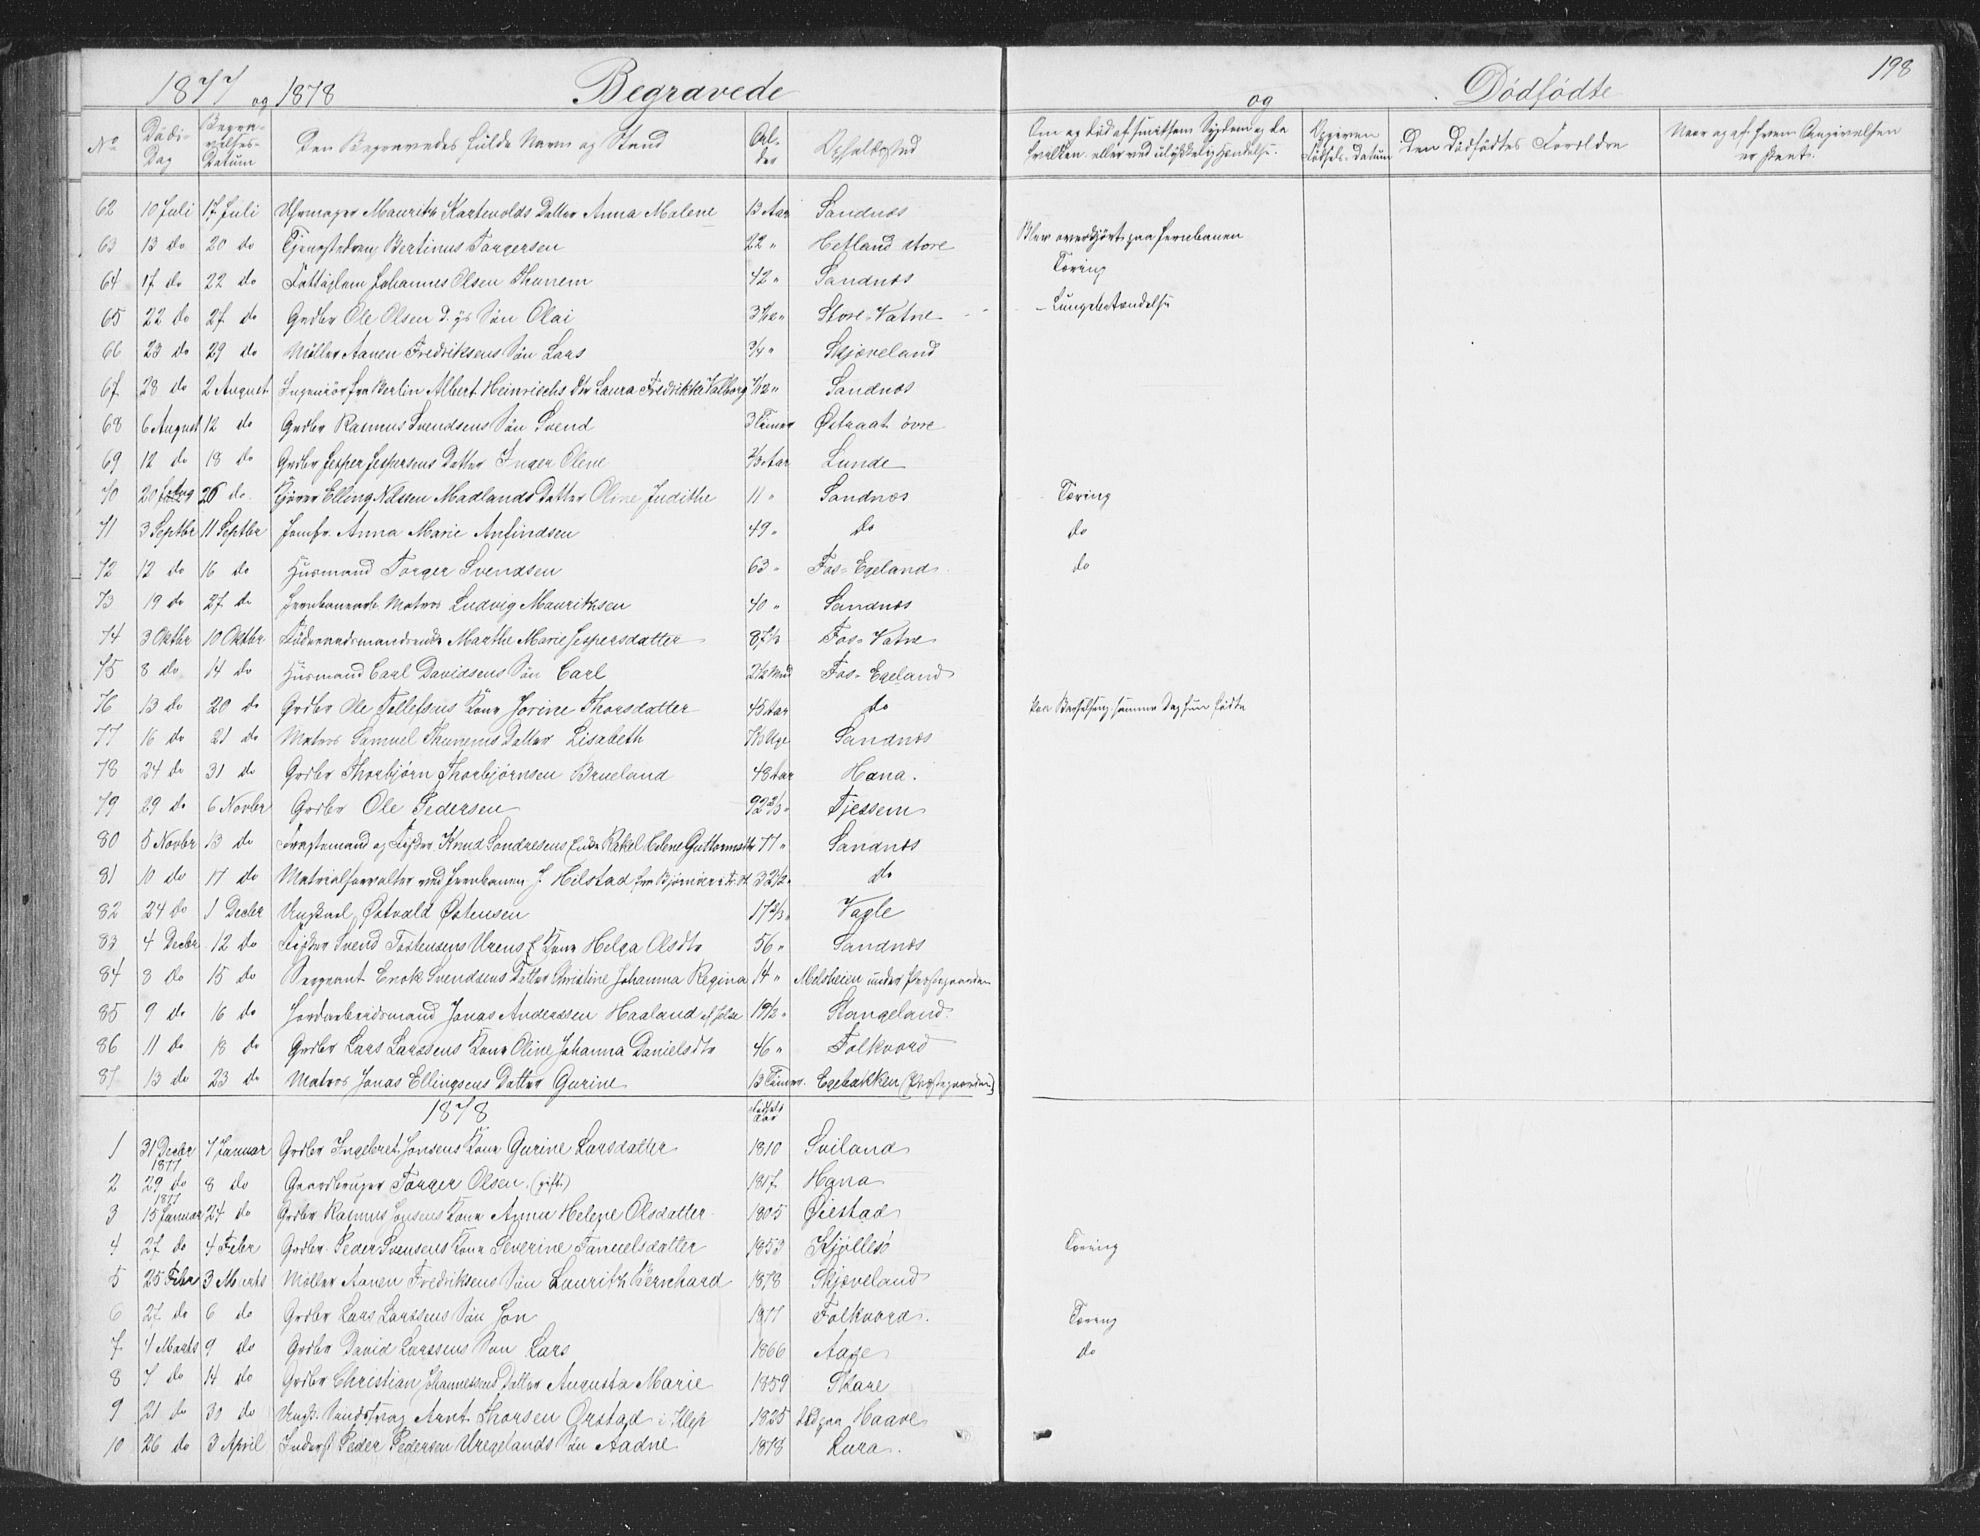 198
1877 og 1878 Begravede og Dødfødte
No Døds-Dag Begravelses-Datum Den Begravedes fulde Navn og Stand Alder Opholdssted Om og død af smitsom Sygdom og da hvilken, eller ved ulykkelig Hændelse. Opgiven Fødsels-Datum Den Dødfødtes Forældre Naar og af hvem Angivelsen er skeet.
62 10 Juli 17 Juli Uhrmager Mauritz Kartevolds Datter Anna Malene 13 Aar Sandnæs
63 13 do 20 do Tjenestedreng Bertinus Torgersen 22 " Hetland store Blev overkjørt paa Jernbanen
64 17 do 22 do Fattiglem Johannes Olsen Thunem 42 " Sandnæs Tæring
65 22 do 27 do Grdbr Ole Olsen d. ys Søn Olai Store-Vatne Lungebetændelse
66 23 do 29 do Møller Aanen Fredriksens Søn Lars 3/4 " Skjæveland
67 28 do 2 August Ingeniør fra Berlin Albert Heinrichs Dtr Laura Fredrikke Valborg Sandnæs
68 6 August 12 do Grdbr Rasmus Svendsens Søn Svend 3 Timer Østraat øvre
69 12 do 18 do Grdbr Jesper Jespersens Datter Inger Olene 2/3 Aar Lunde
70 20 Aug 26 do Elling Nilssen Madlands Datter Oline Judithe 11 " Sandnæs Tæring
71 3 Septbr 11 Septbr Jomfr. Anna Marie Anfindsen 49 " do do
72 12 do 16 do Husmand Torger Svendsen 63 " Fos-Egeland do
73 19 do 27 do Jernbanearb. Matros Ludvig Mauritzsen 40 " Sandnæs
74 3 Oktbr 10 Oktbr Marthe Marie Jespersdatter 87 1/2 Fos-Vatne
75 8 do 14 do Husmand Carl Davidsens Søn Carl 2 1/2 Mnd Fos-Egeland
76 13 do 20 do Grdbr Ole Tollefsens Kone Jorine Thorsdatter 45 Aar do paa Barselseng samme Dag hun fødte
77 16 do 21 do Matros Samuel Thunems Datter Lisabeth Uge Sandnæs
78 24 do 31 do Grdbr Thorbjørn Thorbjørnsen Brueland 48 Aar Hana.
79 29 do 6 Novbr Grdbr Ole Pedersen 92 2/3 " Tjessem
80 5 Novbr 13 do Fragtemand og Knud Sondresens Enke Rakel Helene Guttormsdtr 77 " Sandnæs
81 10 do 17 do Matrialforvalter ved Jernbanen J. Hilstad fra 32 1/2 " do
82 24 do 1 Decbr Ungkarl Østvald Østensen 17 2/3 " Vagle
83 4 Decbr 12 do Svend Tostensens Urens Kone Helga Olsdtr 56 " Sandnæs
84 8 do 15 do Sergeant Enok Svendsens Datter Christine Johanna Regina 14 " Melsheien under Præstegaarden
85 9 do 16 do Jordarbeidsmand Jonas Anderssen Haaland 19 1/2 " Stangeland.
86 11 do 18 do Grdbr Lars Larssens Kone Oline Johanna Danielsdtr 46 " Folkvord
87 13 do 23 do Matros Jonas Ellingsens Datter Gurine 13 Timer. Egebakken (Præstegaarden)
1878 Fødsels Aar
1 31 Decbr 1877 7 Januar Grdbr Ingebret Jonsens Kone Gurine Larsdatter 1810 Sviland
2 29 do 1877 8 do Gaardbruger Torger Olsen (gift.) 1817 Hana
3 15 Januar 24 do Grdbr Rasmus Jonsens Kone Anna Helene Olsdatter 1805 Øiestad
4 27 do 4 Febr Grdbr Peder Svensens Kone Severine Samuelsdatter 1853 Kjøllesø Tæring
5 25 Febr 3 Marts Møller Aanen Fredriksens Søn Lauritz Bernhard 1878 Skjæveland
6 27 do 6 do Grdbr Lars Larssens Søn Jon 1877 Folkvord. Tæring
7 4 Marts 9 do Grdbr David Larssens Søn Lars 1866 Aase do
8 7 do 14 do Grdbr Christian Johannessens Datter Augusta Marie 1859 Skare
9 21 do 30 do Arnt Thorsen Orstad i Klep 1825 død paa Haave
10 26 do 3 April Inderst Peder Pedersen Uregelands Søn Aadne 1878 Lura.